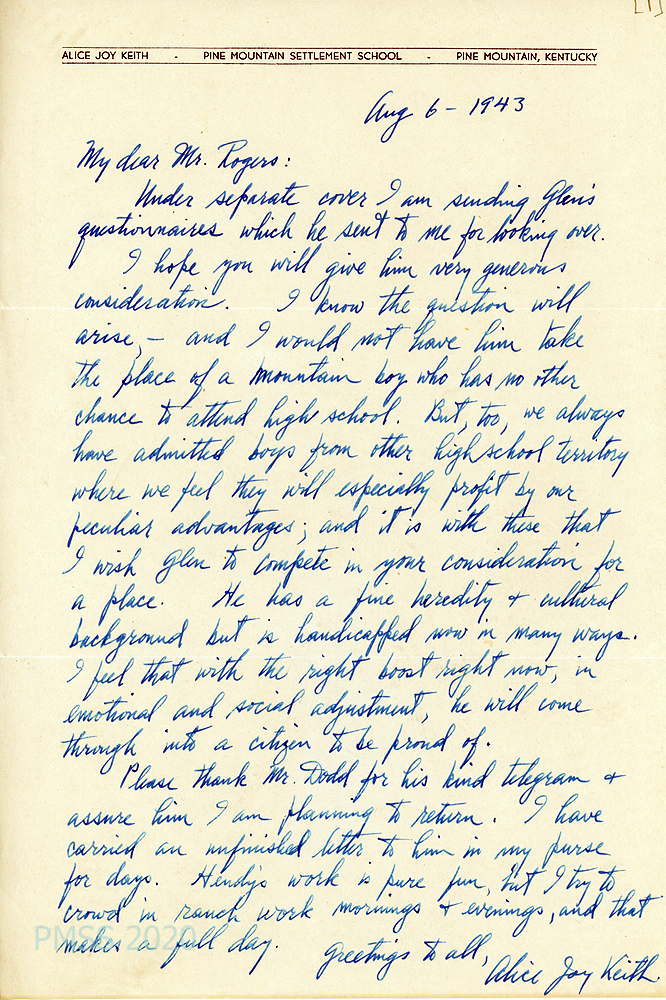 [1]
ALICE JOY KEITH - PINE MOUNTAIN SETTLEMENT SCHOOL - PINE MOUNTAIN, KENTUCKY
Aug 6 - 1943
My dear Mr. Rogers:
Under separate cover I am sending Glen's
questionnaires which he sent to me for looking over.
I hope you will give him very generous
consideration. I know the question will
arise, — and I would not have him take
the place of a mountain boy who has no other
chance to attend high school. But, too, we always
have admitted boys from other high school territory
where we feel they will especially profit by our
peculiar advantages; and it is with these that
I wish Glen to compete in your consideration for
a place. He has a fine heredity & cultural
background but is handicapped now in many ways.
I feel that with the right boost right now, in
emotional and social adjustment, he will come
through into a citizen to be proud of.
Please thank Mr. Dodd for his kind telegram &
assure him I am planning to return. I have
carried an unfinished letter to him in my purse
for days. Hendy's work is pure fun, but I try to
crowd in ranch work mornings & evenings, and that
makes a full day. Greetings to all,
Alice Joy Keith.
PMSS 2020